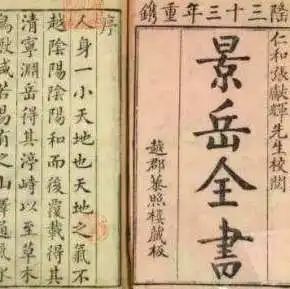 隆三十三年重鐫
仁和張獻輝先生校閱
景岳全書
越郡藜照樓藏板
序
人身一小天地也天地之氣不
越陰陽陰陽和而後覆載得其
清寧淵岳得其渟峙以至草木
鳥獸咸若易有之山澤通氣水